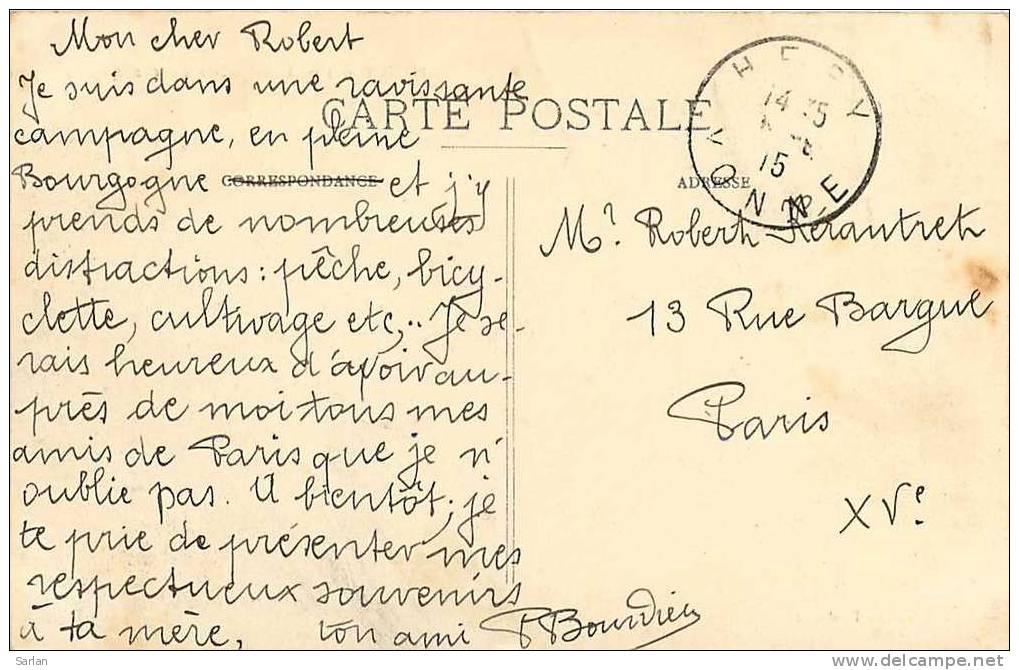 Mon cher Robert
Je suis dans une ravissante
CARTE POSTALE
campagne, en pleine
Bourgogne CORRESPONDANCE et j'y
prends de nombreuses
distractions : pêche, bicy-
clette, cultivage etc,.. Je se-
rais heureux d'avoir au-
près de moi tous mes
amis de Paris que je n'
oublie pas. A bientôt, je
te prie de présenter mes
respectueux souvenirs
à ta mère, ton ami P Bourdieu
ADRESSE
Mr. Robert Kerautret
13 Rue Bargue
Paris
XVe.
YONNE
Sarlan
www.delcampe.net